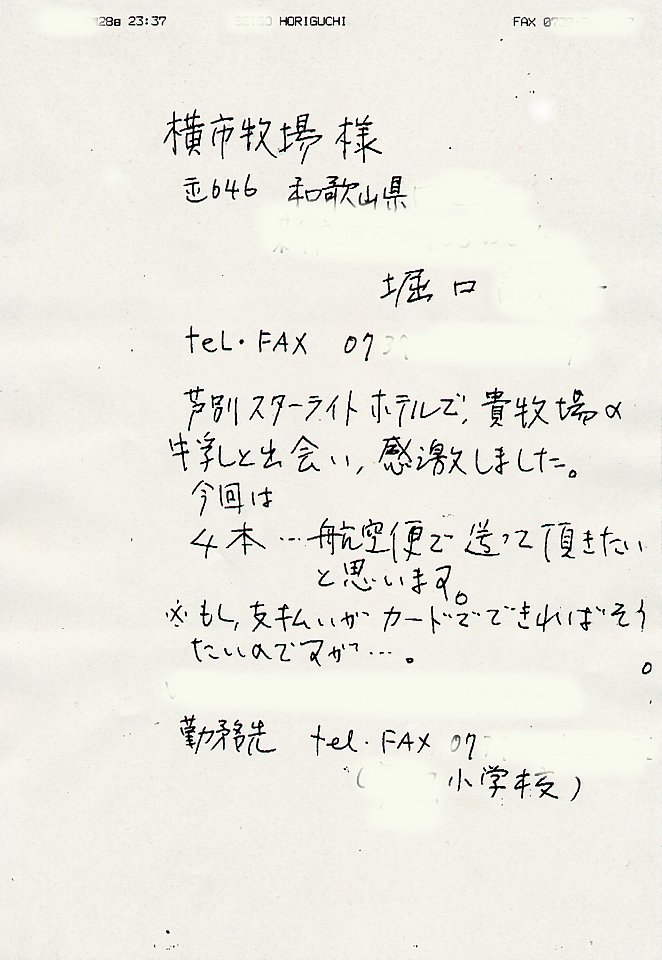 28日 23:37 SEIGO HORIGUCHI FAX 073
横市牧場 様
〒646 和歌山県
堀口
tel・FAX 0737
芦別スターライトホテルで、貴牧場の
牛乳と出会い、感激しました。
今回は
4本…航空便で送って頂きたい
と思います。
※もし、支払いがカードでできればそう
したいのですが…。
勤務先 tel・FAX 07
( 小学校)